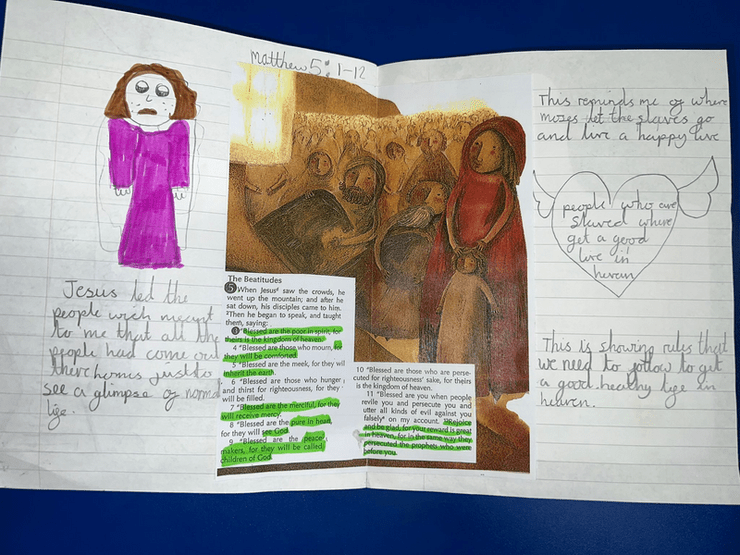 Matthew 5: 1-12
Jesus led the
people wich meant
to me that all the
people had come out
there homs just to
see a glimpse of normal
lige.
The Beatitudes
5 When Jesus saw the crowds, he
went up the mountain; and after he
sat down, his disciples came to him.
2Then he began to speak, and taught
them, saying:
3 "Blessed are the poor in spirit, for
theirs is the kingdom of heaven.
4 "Blessed are those who mourn, for
they will be comforted.
5 "Blessed are the meek, for they will
inherit the earth.
6 "Blessed are those who hunger
and thirst for righteousness, for they
will be filled.
7 "Blessed are the merciful, for they
will receive mercy.
8 "Blessed are the pure in heart,
for they will see God.
9 "Blessed are the peace
makers, for they will be called
children of God.
10 "Blessed are those who are perse-
cuted for righteousness' sake, for theirs
is the kingdom of heaven.
11 "Blessed are you when people
revile you and persecute you and
utter all kinds of evil against you
falsely on my account. 12Rejoice
and be glad, for your reward is great
in heaven, for in the same way they
persecuted the prophets who were
before you.
This reminds me of where
moses let the slaves go
and live a happy live
people who are
slaved where
get a good
live in
heven
This is showing rules that
we need to follow to get
a good healthy lige in
heaven.